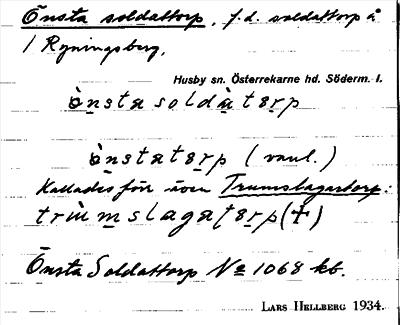 Önsta soldattorp, f.d. soldattorp å
/ Ryningsberg,
Husby sn. Österrekarne hd. Söderm. l.
ö̀nstasoldàtərp
ö̀nstatərp (vanl.)
Kallades förr även Trumslagartorp:
trùmslagatərp (+)
Önsta Soldattorp № 1068 kb.
LARS HELLBERG 1934.